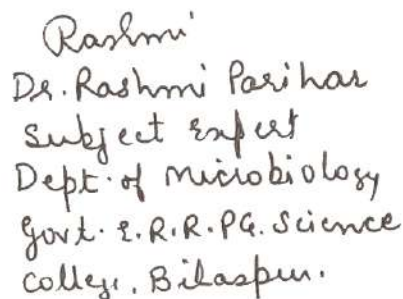 Rashmi
Dr. Rashmi Parihar
Subject Expert
Dept. of Microbiology
Govt. E.R.R. PG. Science
College, Bilaspur.